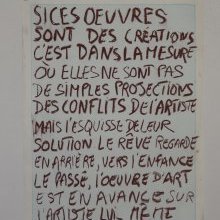 SI CES OEUVRES
SONT DES CRÉATIONS
C'EST DANS LA MESURE
OÙ ELLES NE SONT PAS
DE SIMPLES PROJECTIONS
DES CONFLITS DE L'ARTISTE
MAIS L'ESQUISSE DE LEUR
SOLUTION LE RÊVE REGARDE
EN ARRIÈRE, VERS L'ENFANCE
LE PASSÉ, L'OEUVRE D'ART
EST EN AVANCE SUR
L'ARTISTE LUI-MÊME